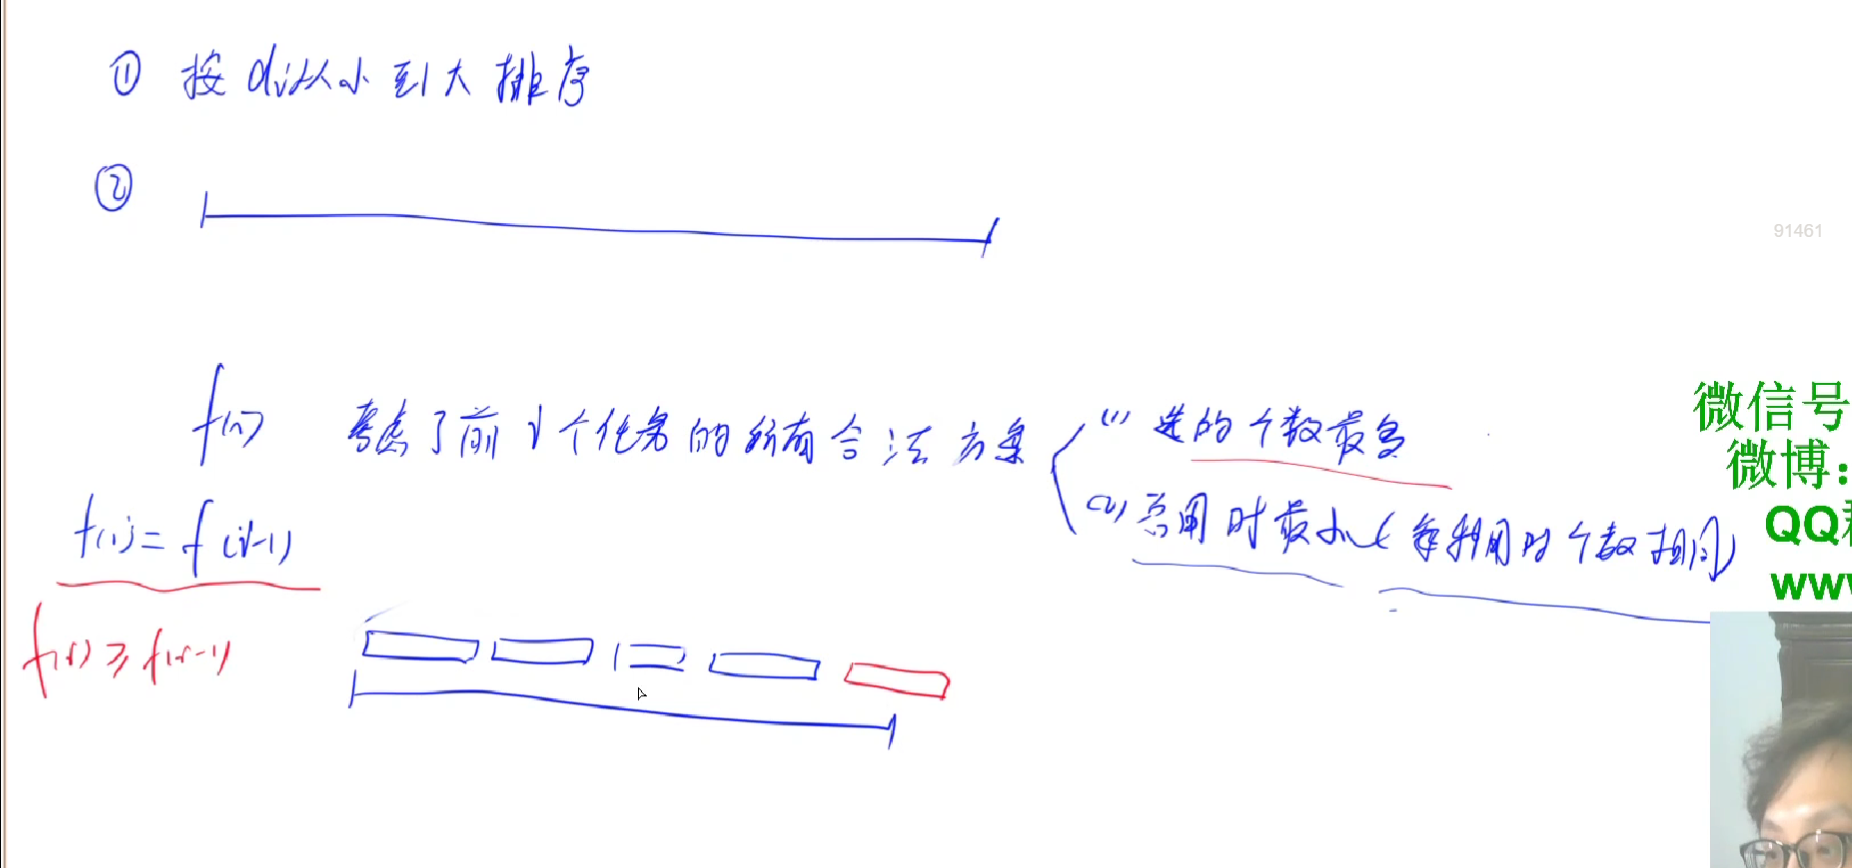 ① 按di从小到大排序
②
91461
f(i) 考虑了前i个任务的所有合法方案 (1) 选的个数最多
(2) 总用时最小(在利用时个数相同)
f(i) = f(i-1)
f(i) ≥ f(i-1)
微信号
微博:
QQ群
www